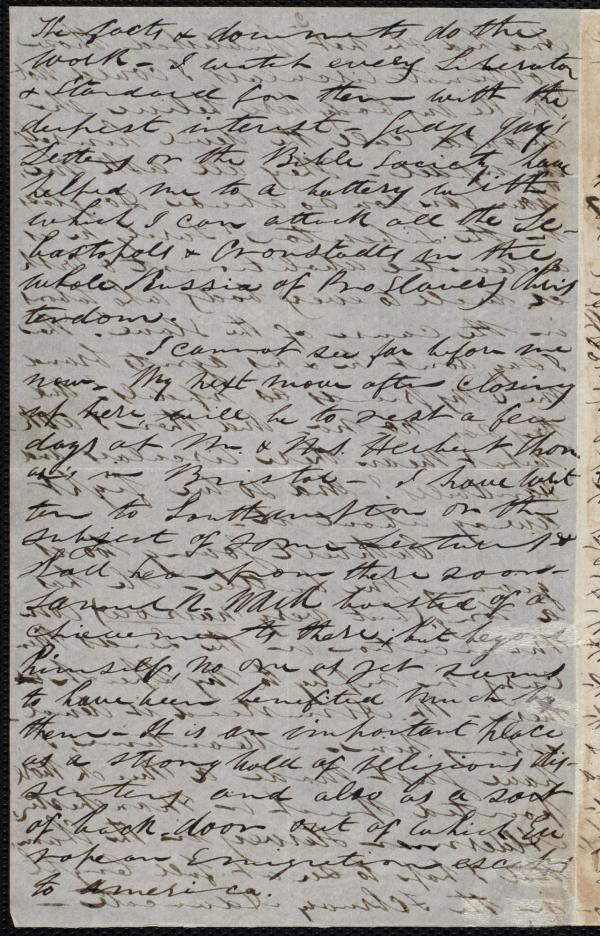 The facts & documents do the
work – I watch every Liberator
& Standard for them with the
deepest interest – Judge Jay's
Letters on the Bible Society, have
helped me to a battery with
which I can attack all the Se-
bastopols & Cronstadts in the
whole Russia of Proslavery Chris
tendom.
I cannot see far before me
now – My next move after closing
up here, will be to rest a few
days at Mr. & Mrs. Herbert Thom
as's in Bristol – I have writ
ten to Southampton on the
subject of some Lectures &
shall hear from there soon –
Samuel R. Ward boasted of a
chievements there, but beyond
himself, no one as yet seems
to have been benefited much by
them – It is an important place
as a strong hold of religious dis-
senters, and also as a sort
of back-door out of which Eu
ropean Emigration escapes
to America.